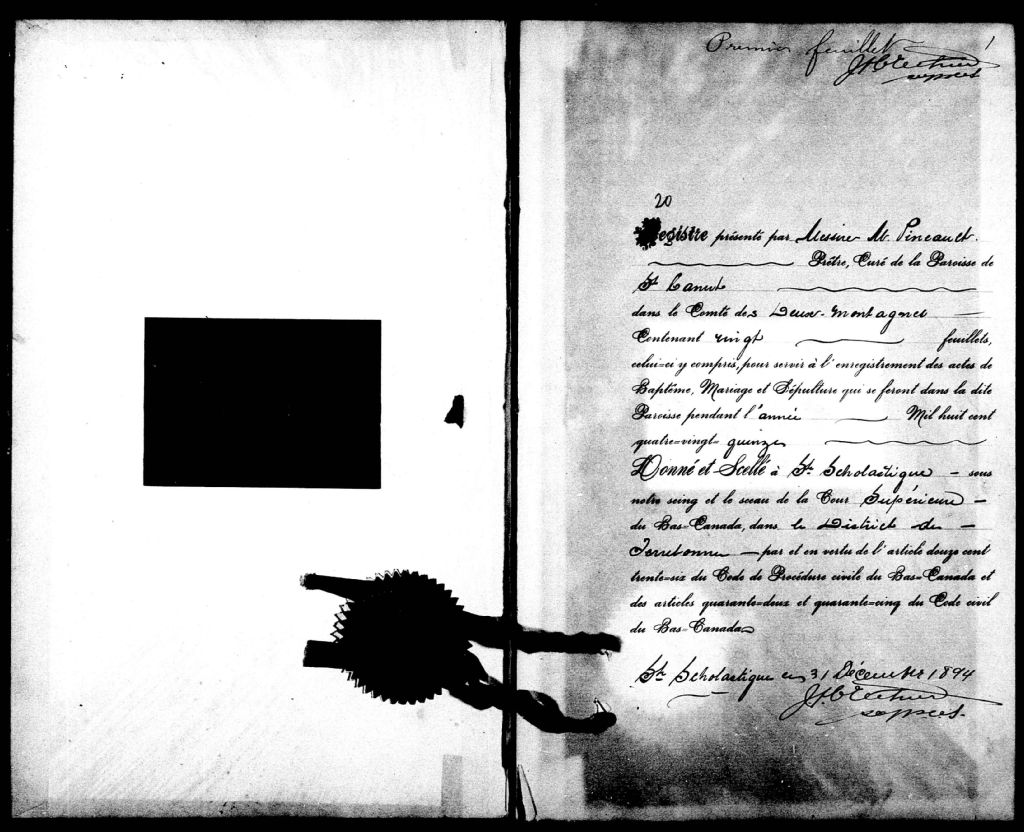 Premier feuillet 1
20
Registre présenté par Messire M. Pineault.
Prêtre, Curé de la Paroisse de
St Canut
dans le Comté des Deux-Montagnes
Contenant vingt feuillets,
celui=ci y compris, pour servir à l'enregistrement des actes de
Baptême, Mariage et Sépulture qui se feront dans la dite
Paroisse pendant l'année Mil huit cent
quatre=vingt= quinze
Donné et Scellé à St. Scholastique - sous
notre seing et le sceau de la Cour Supérieure -
du Bas=Canada, dans le District de -
Terrebonne - par et en vertu de l'article douze cent
trente=six du Code de Procédure civile du Bas=Canada et
des articles quarante=deux et quarante=cinq du Code civil
du Bas=Canada
St. Scholastique ce 31 Décembre 1894